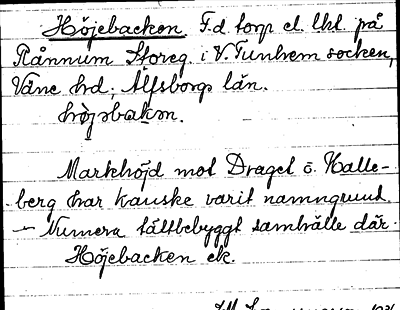 Höjebacken. F.d. torp el. lht. på
Rånnum Storeg. i V. Tunhem socken,
Väne hd, Älfsborgs län.
Markhöjd mot Draget o. Halle-
berg har kanske varit namngrund.
– Numera tättbebyggt samhälle där.
Höjebacken ek.